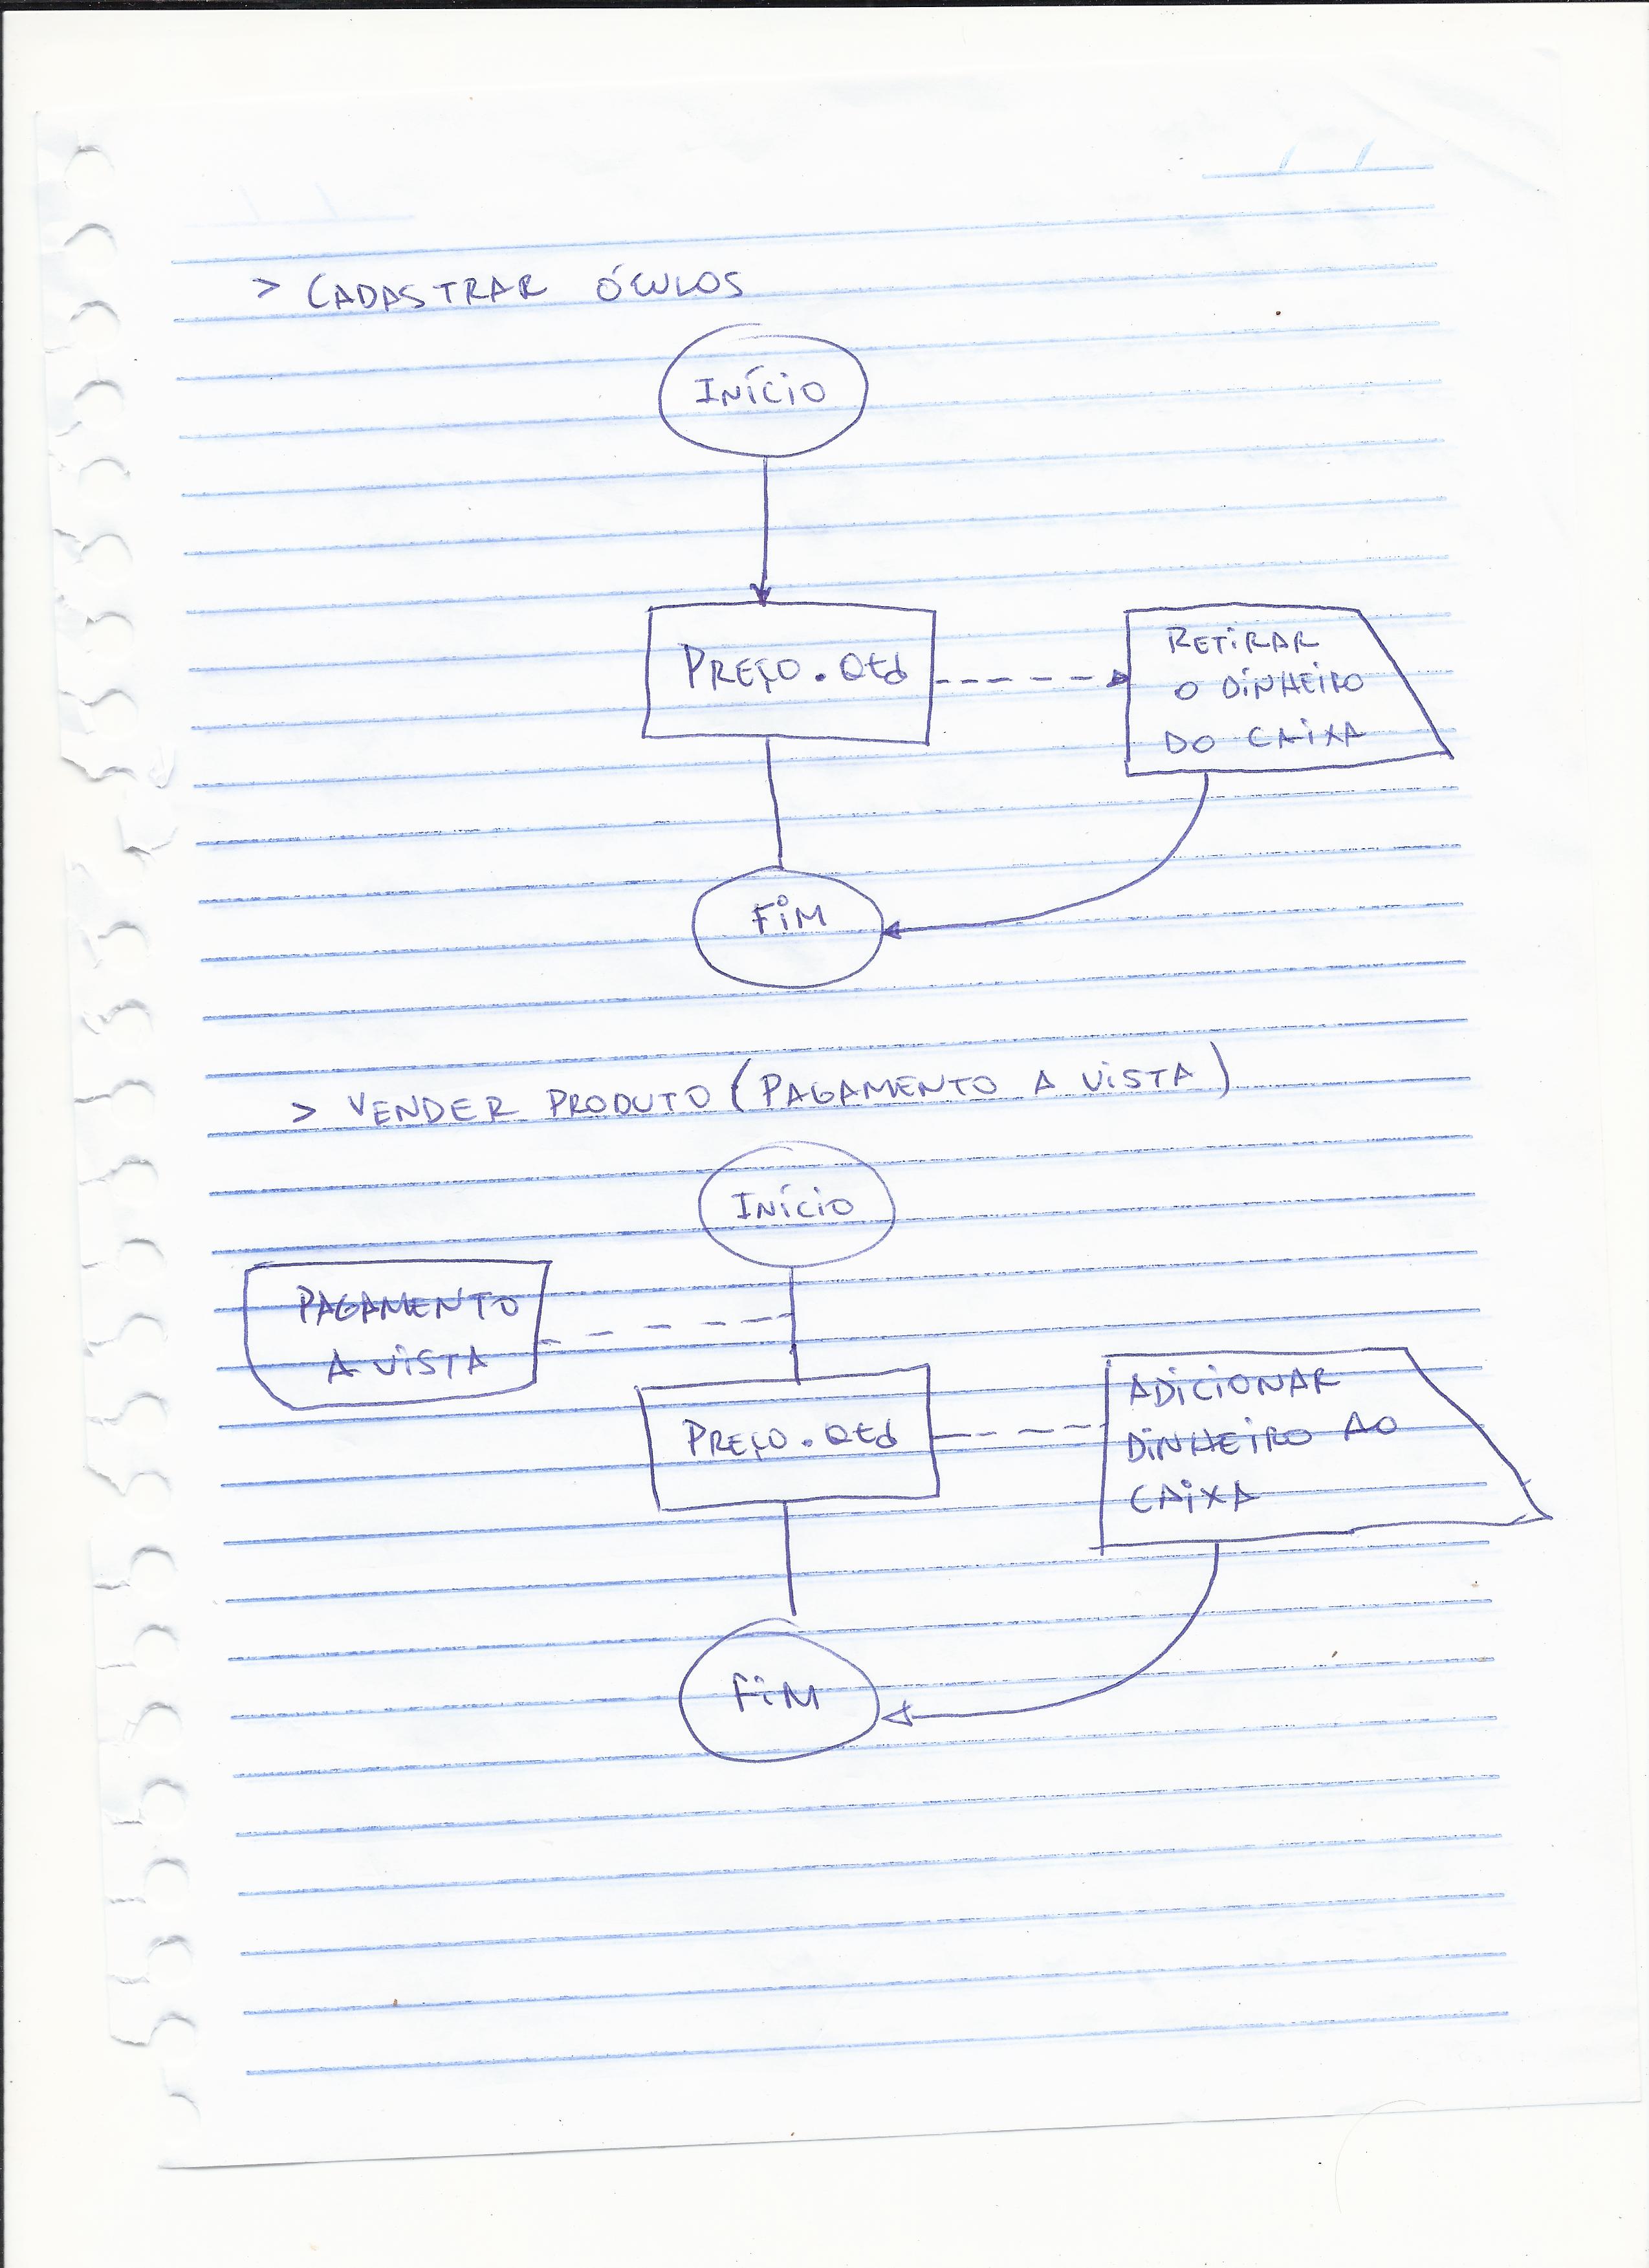 > CADASTRAR ÓCULOS
INÍCIO
PREÇO . Qtd
RETIRAR
O DINHEIRO
DO CAIXA
FIM
> VENDER PRODUTO (PAGAMENTO A VISTA)
INÍCIO
PAGAMENTO
A VISTA
PREÇO . Qtd
ADICIONAR
DINHEIRO AO
CAIXA
FIM